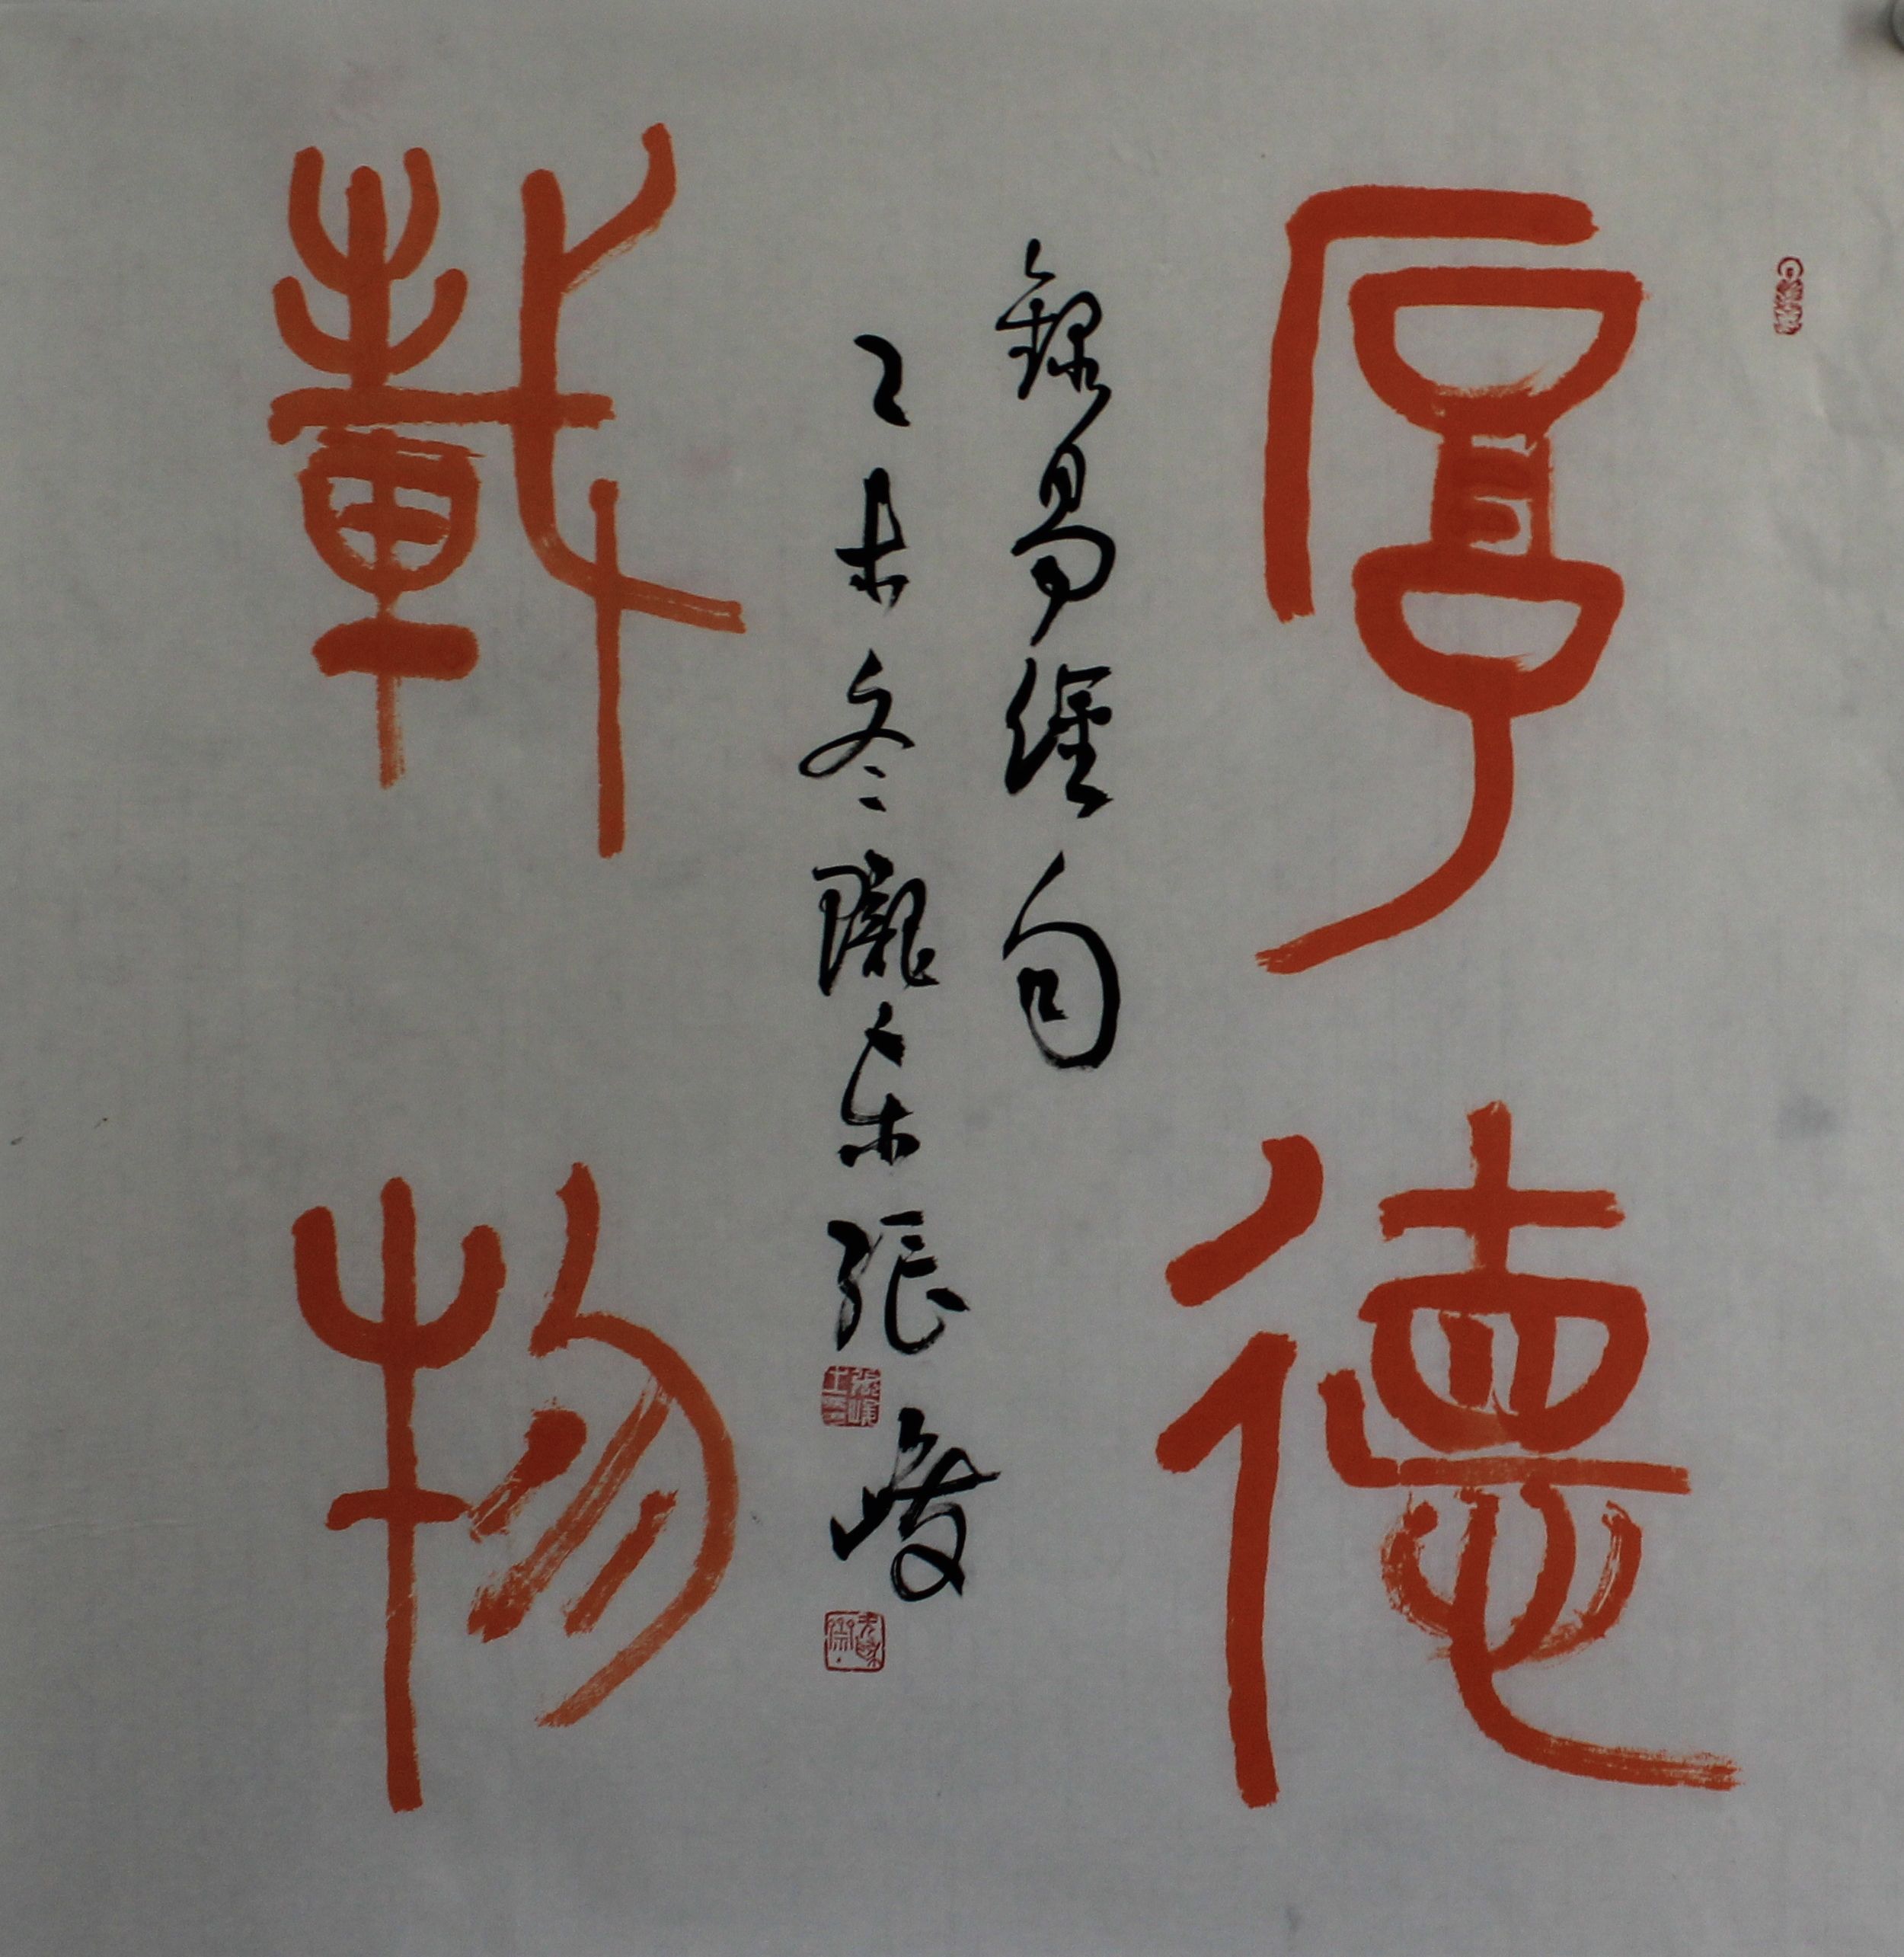 厚德
載物
錄易經句
乙未冬隴東張峻